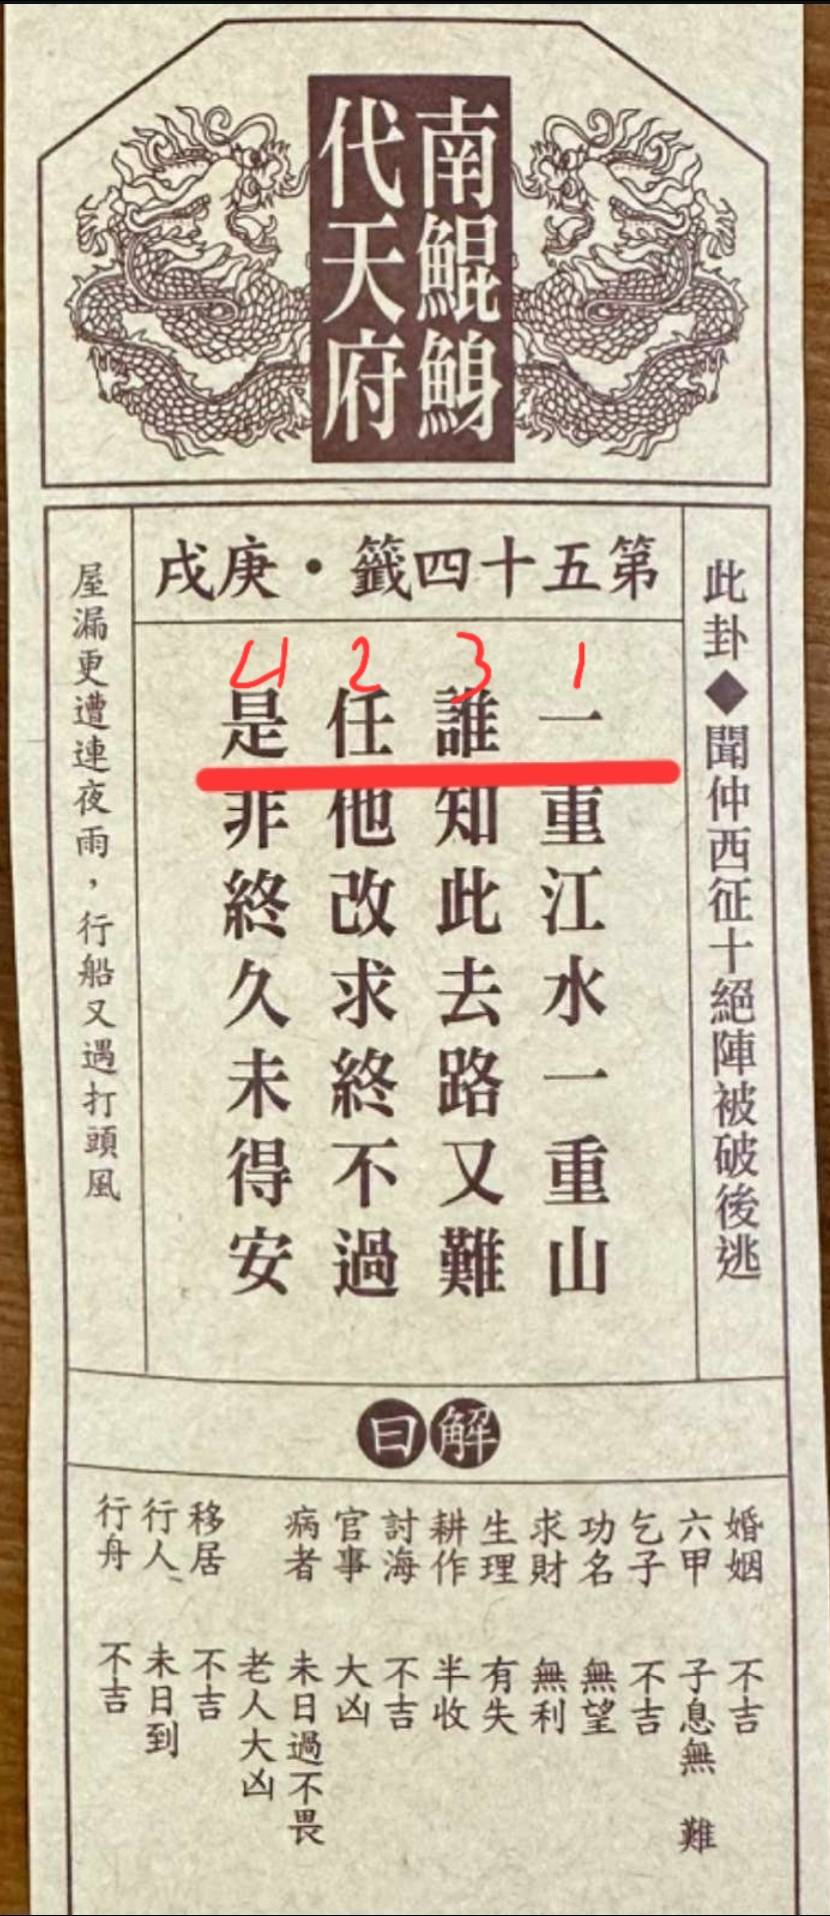 南鯤鯓
代天府
第五十四籤・庚戌
此卦◆聞仲西征十絕陣被破後逃
1 3 2 4
一重江水一重山
誰知此去路又難
任他改求終不過
是非終久未得安
屋漏更遭連夜雨，行船又遇打頭風
解曰
婚姻 不吉
六甲 子息無 難
乞子 不吉
功名 無望
求財 無利
生理 有失
耕作 半收
討海 不吉
官事 大凶
病者 未日過不畏
老人大凶
移居 不吉
行人、 未日到
行舟 不吉